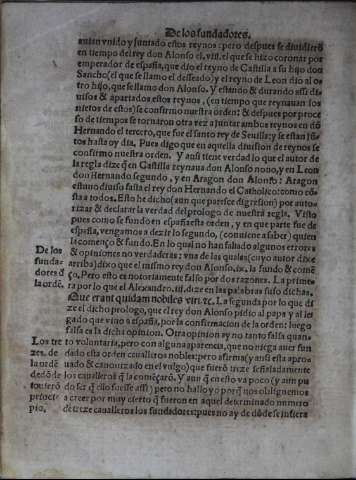 De los fundadores.
auian vnido y juntado estos reynos: pero despues se diuidierō
en tiempo del rey don Alonso el. viii. el que se hizo coronar por
emperador de españa, que dio el reyno de Castilla a su hijo don
Sancho (el que se llamo el desseado) y el reyno de Leon dio al o-
tro hijo, que se llamo don Alonso. Y estando & durando assi di-
uisos & apartados estos reynos, (en tiempo que reynauan los
nietos de estos) se confirmo nuestra orden: & despues por proce
so de tiempos se tornaron otra vez a juntar ambos reynos en dō
Hernando el tercero, que fue el santo rey de Seuilla: y se estan jūn
tos hasta oy dia. Pues digo que en aquella diuision de reynos se
confirmo nuestra orden. Y ansi tiene verdad lo que el autor de
la regla dize q̄ en Castilla reynaua don Alonso nono, y en Leon
don Hernando segundo, y en Aragon don Alonso: Aragon
estuuo diuiso fasta el rey don Hernando el Catholico: como co
sta a todos. Esto he dicho (aun que paresce digression) por auto-
rizar & declarar la verdad del prologo de nuestra regla. Visto
pues como se fundo en españa esta orden, y en que parte fue de
españa, vengamos a dezir lo segundo, (conuiene a saber) quien
la començo & fundo. En lo qual no han faltado algunos errores
De los & opiniones no verdaderas: vna de las quales (cuyo autor dixe
funda- arriba) dixo que el mismo rey don Alonso. ix. la fundo & comē
dores d̄ ço, Pero esto es notoriamente falso por dos razones. La prime-
la ordē. ra por lo que el Alexandro. iii. dize en las palabras suso dichas.
Que erant quidam nobiles viri. &c. La segunda por lo que di-
ze el dicho prologo, que el rey don Alonso pidio al papa y al le-
gado que vino a españa, por la confirmacion de la orden: luego
falsa es la dicha opinion. Otra opinion ay no tanto falsa quan-
Los tre to voluntaria, pero con alguna aparencia, que no niega auer fun
ze. de dado esta orden caualleros nobles: pero afirma (y ansi esta apro-
la ordē uado & canonizado en el vulgo) que fuerō treze señaladamente
dedōde los caualleros q̄ la comēçarō. Y aun q̄ en esto va poco (y aun pu
tomo do ser q̄ dio fuesse assi) pero no hallo yo porq̄ nos obliguemos
proce a creer por muy cierto q̄ fueron en aquel determinado numero
pio, de treze caualleros los fundadores: pues no ay de dōde se infiera